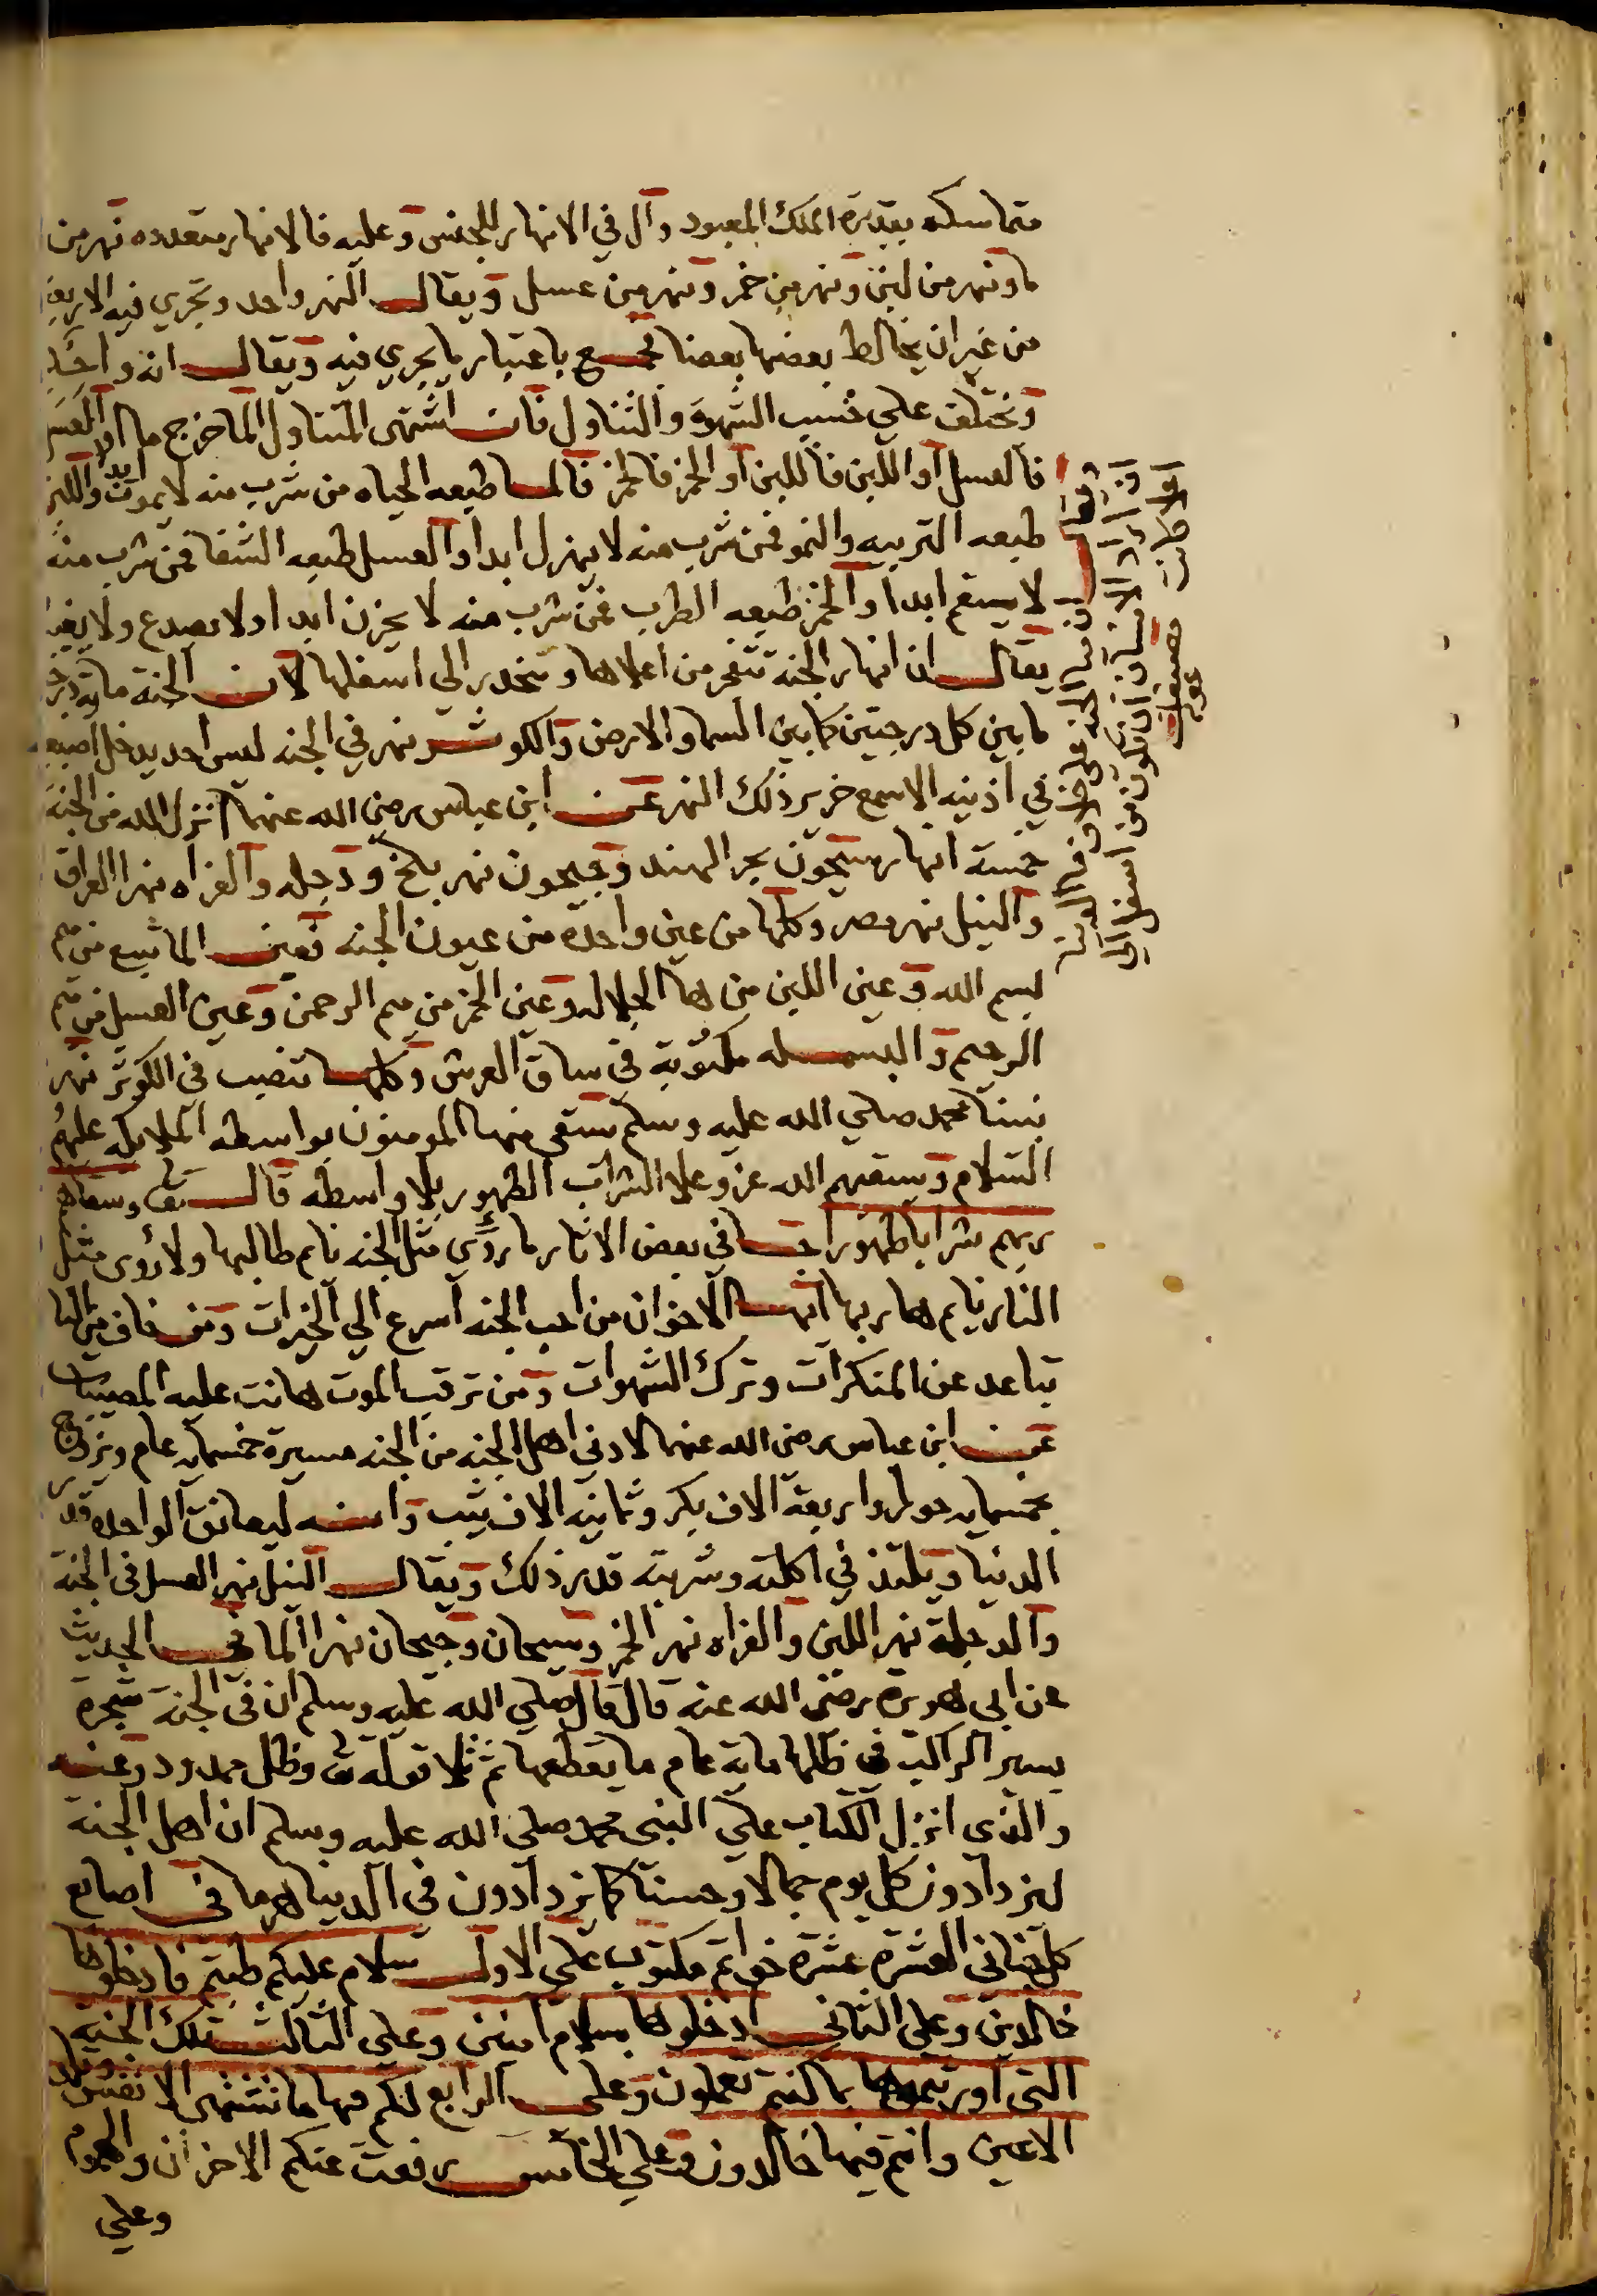 متماسكه بقدرة الملك المعبود وآل في الانهار للجنس وعليه فالانهار متعدده نهر من
ما ونهر من لبن ونهر من خمر ونهر من عسل ويقال النهر واحد وتجري فيه الاربعة
من غير ان يخالط بعضها بعضا فجمع باعتبار ما يجري فيه ويقال انه واحد
وتختلف علي حسب الشهوة والتناول فان اشتهى المتناول الما خرج ما او العسل
فالعسل او اللبن فاللبن او الخمر فالخمر فالما طبعه الحياه من شرب منه لا يموت ابدا واللبن
طبعه التربيه والنمو فمن شرب منه لا يهزل ابدا والعسل طبعه الشفا فمن شرب منه
لا يسقم ابدا والخمر طبعه الطرب فمن شرب منه لا يحزن ابدا ولا يصدع ولا
يقال ان انهار الجنة تتفجر من اعلاها وتنحدر الي اسفلها لان الجنة ماية درجة
ما بين كل درجتين كما بين السما والارض والكوثر نهر في الجنه ليس احد يدخل اصبعيه
في اذنيه الا سمع خرير ذلك النهر عن ابن عباس رضي الله عنهما انزل الله من الجنة
خمسة انهار سيحون بحر الهند وجيحون نهر بلخ ودجله والفراه نهرا العراق
والنيل نهر مصر وكلها من عين واحدة من عيون الجنه فعين الما تنبع من ميم
بسم الله وعين اللبن من ها الجلاله وعين الخمر من ميم الرحمن وعين العسل من ميم
الرحيم والبسمله مكتوبة في ساق العرش وكلها تنصب في الكوثر نهر
نبينا محمد صلي الله عليه وسلم يسقى منها المومنون بواسطه الملايكه عليهم
السلام ويسقيهم الله عز وعلا الشراب الطهور بلا واسطه قال تعالى وسقاهم
ربهم شرابا طهورا جا في بعض الاثار ما رؤي مثل الجنه نام طالبها ولا رؤي مثل
النار نام هاربها ايها الاخوان من احب الجنه اسرع الي الخيرات ومن خاف من النار
تباعد عن المنكرات وترك الشهوات ومن ترقب الموت هانت عليه المصيبات
عن ابن عباس رضي الله عنهما لادني اهل الجنه من الجنه مسيرة خمسمايه عام ويزوج
بخمسمايه حورا واربعة الاف بكر وثمانيه الاف ثيب وانه ليعانق الواحده قدر
الدنيا ويلتذ في اكلته وشربته قدر ذلك ويقال النيل نهر العسل في الجنة
والدجلة نهر اللبن والفراه نهر الخمر وسيحان وجيحان نهرا الما في الحديث
عن ابي هريرة رضي الله عنه قال قال صلي الله عليه وسلم ان في الجنة شجرة
يسير الراكب في ظلها ماية عام ما يقطعها ثم تلا قوله تعالى وظل ممدود وعنه
والذي انزل الكتاب علي النبي محمد صلي الله عليه وسلم ان اهل الجنة
ليزدادون كل يوم جمالا وحسنا كما يزدادون في الدنيا هرما في اصابع
العشرة عشرة خواتم مكتوب علي الاول سلام عليكم طبتم فادخلوها
خالدين وعلي الثاني ادخلوها بسلام امنين وعلي الثالث تلك الجنة
التي اورثتموها بما كنتم تعملون وعلي الرابع لكم فيها ما تشتهي الانفس وتلذ
الاعين وانتم فيها خالدون وعلي الخامس رفعت عنكم الاحزان والهموم
وعلي